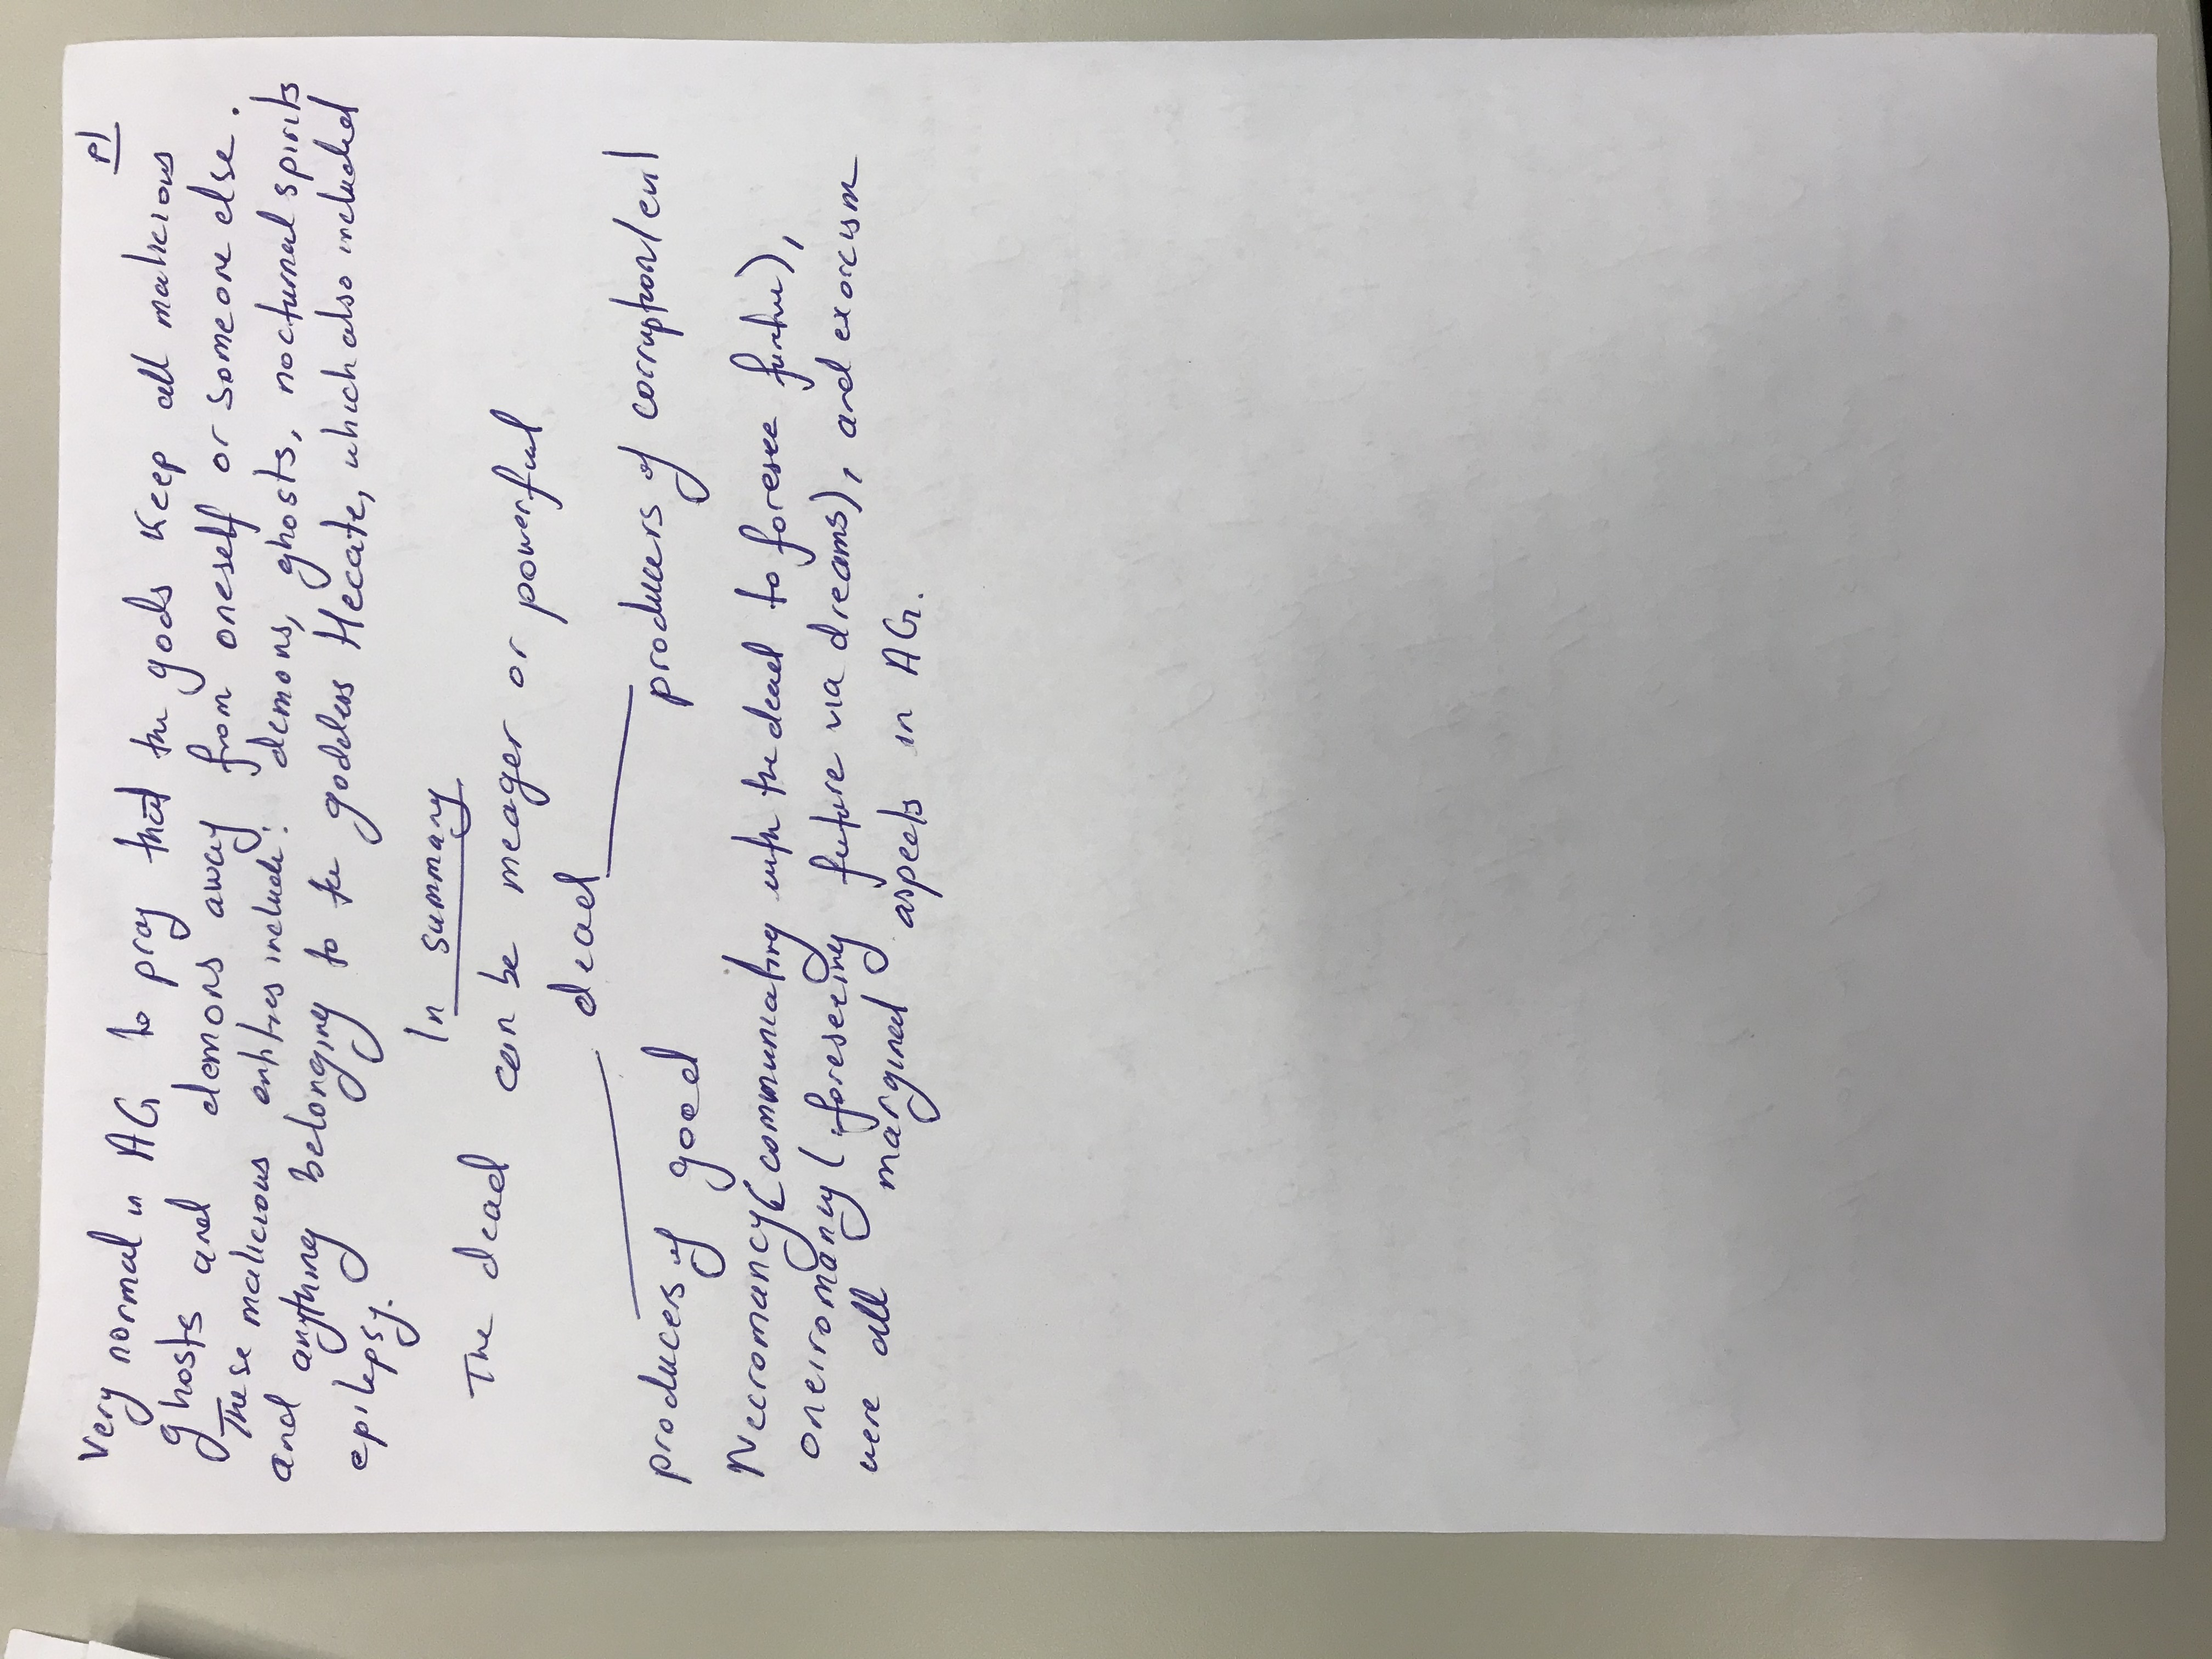 p1
Very normal in AG to pray that the gods keep all malicious
ghosts and demons away from oneself or someone else.
These malicious entities include: demons, ghosts, nocturnal spirits
and anything belonging to the goddess Hecate, which also included
epilepsy.
In summary
The dead can be meager or powerful
dead
producers of good producers of corruption/evil
Necromancy (communicating with the dead to foresee furture),
oneiromancy (foreseeing future via dreams), and exorcism
were all marginal aspects in AG.